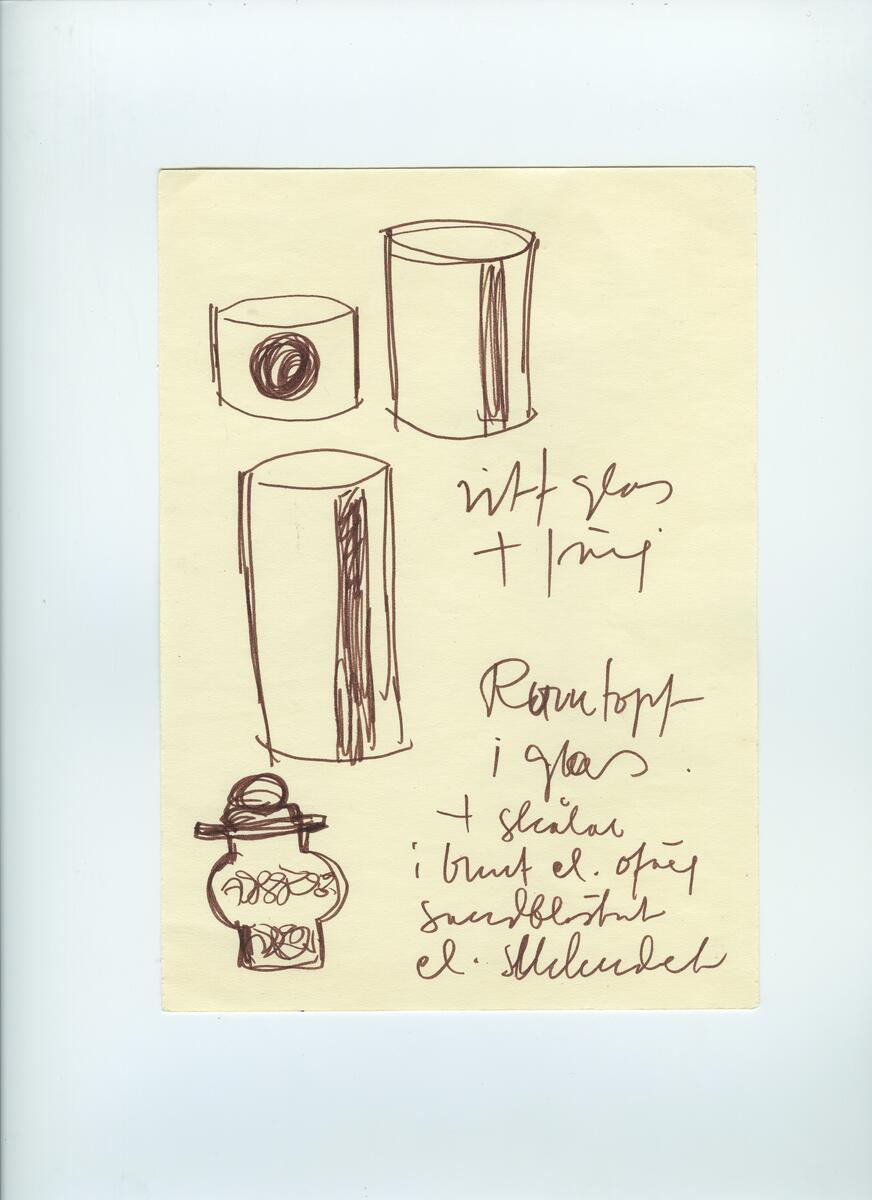 vitt glas
+ färg
Romtopf
i glas.
+ skålar
i brunt el. ofärg
sandblästrat
el.